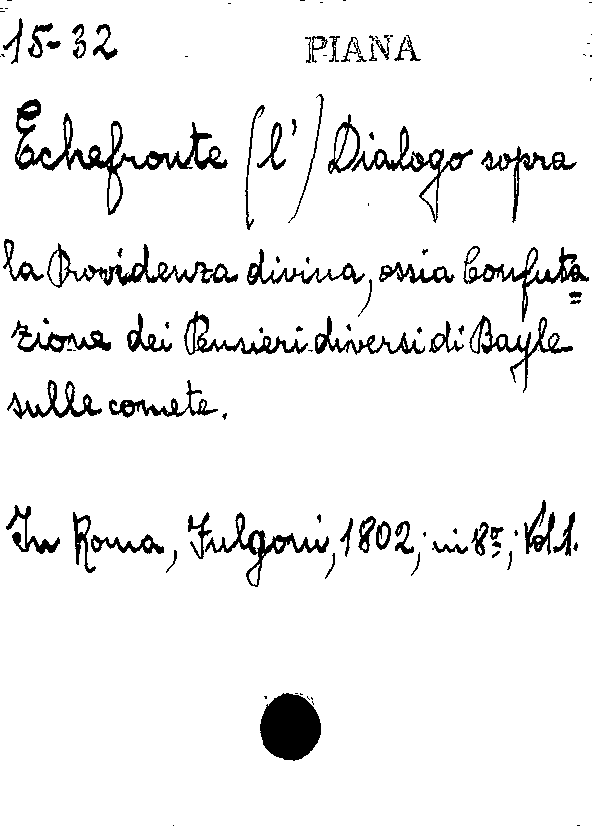 15-32 PIANA
Echefronte (l') Dialogo sopra
la Providenza divina, ossia Confuta=
zione dei Pensieri diversi di Bayle
sulle comete.
In Roma, Fulgoni, 1802; in 8º; Vol. 1.